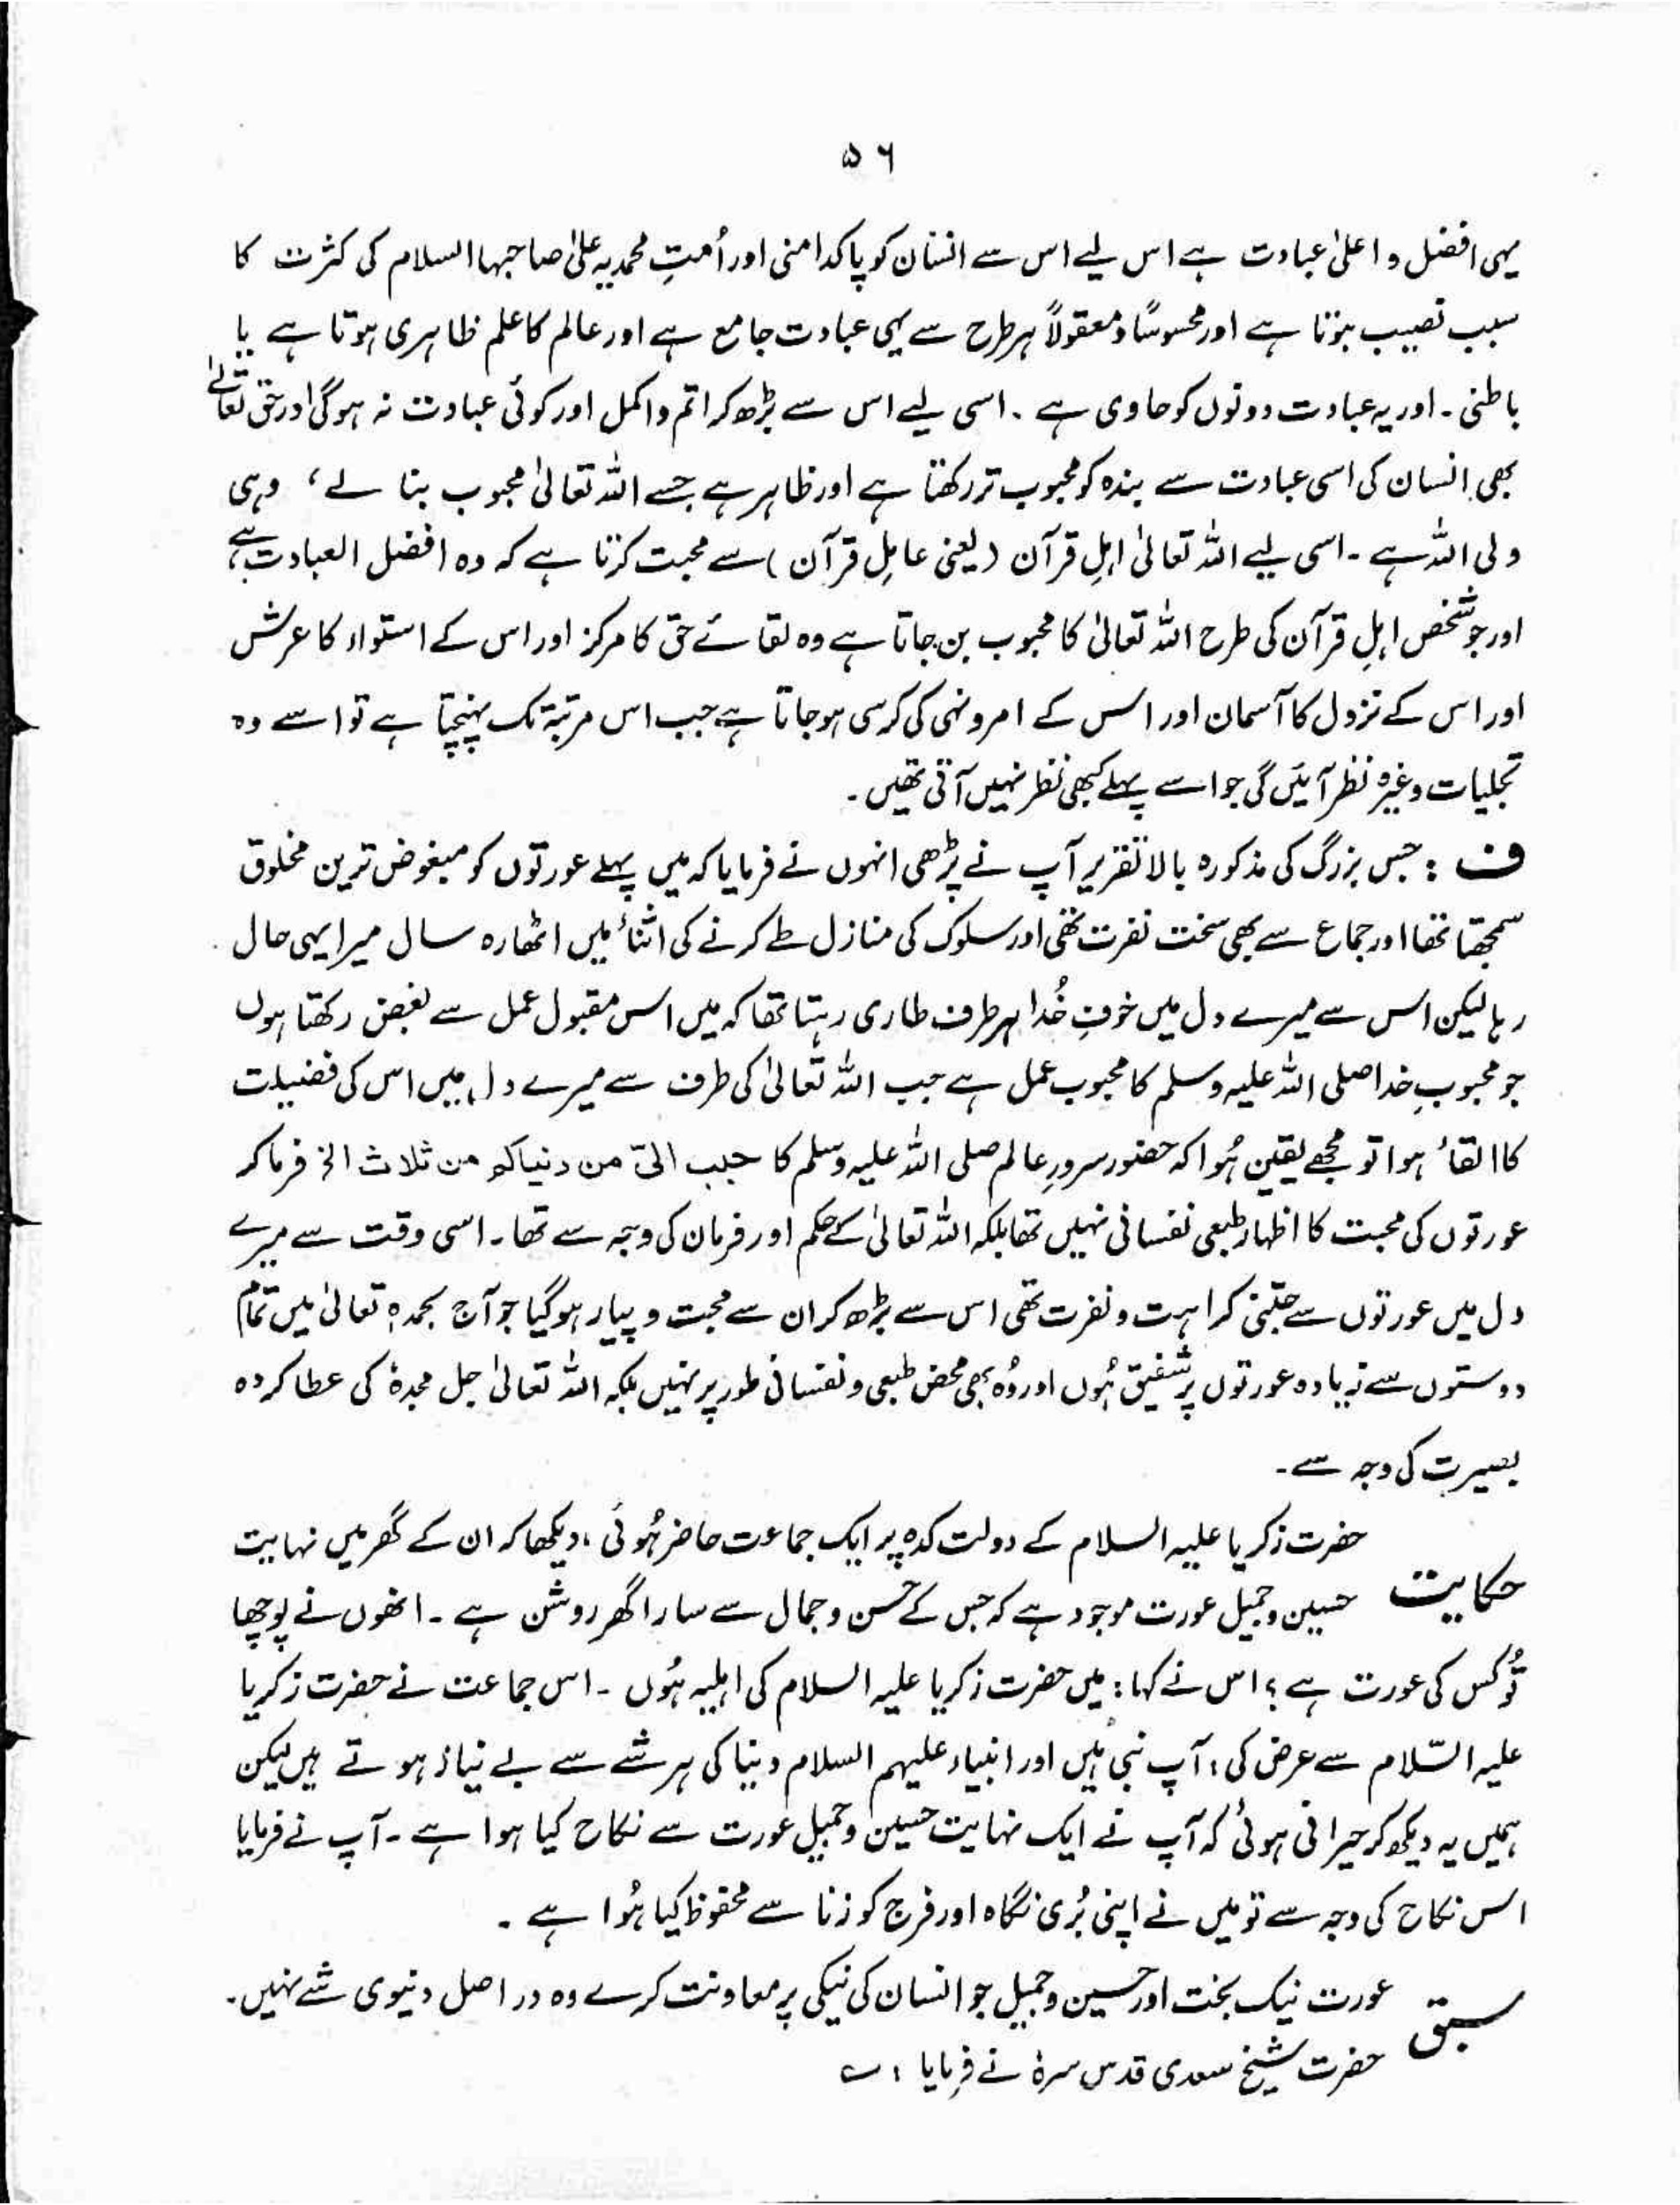 ۵۶
یہی افضل و اعلیٰ عبادت ہے اس لیے اس سے انسان کو پاکدامنی اور اُمتِ محمدیہ علیٰ صاحبہا السلام کی کثرت کا
سبب نصیب ہوتا ہے اور محسوسًا و معقولاً ہر طرح سے یہی عبادت جامع ہے اور عالم کا علم ظاہری ہوتا ہے یا
باطنی ۔ اور یہ عبادت دونوں کو حاوی ہے ۔ اسی لیے اس سے بڑھ کر اتم و اکمل اور کوئی عبادت نہ ہوگی اور حق تعالےٰ
بھی انسان کی اسی عبادت سے بندہ کو محبوب تر رکھتا ہے اور ظاہر ہے جسے اللہ تعالیٰ محبوب بنا لے ، وہی
ولی اللہ ہے ۔ اسی لیے اللہ تعالیٰ اہلِ قرآن ( یعنی عاملِ قرآن ) سے محبت کرتا ہے کہ وہ افضل العبادت ہے ،
اور جو شخص اہلِ قرآن کی طرح اللہ تعالیٰ کا محبوب بن جاتا ہے وہ لقائے حق کا مرکز اور اس کے استواء کا عرش
اور اس کے نزول کا آسمان اور اس کے امر و نہی کی کرسی ہو جاتا ہے جب اس مرتبہ تک پہنچتا ہے تو اسے وہ
تجلیات وغیرہ نظر آئیں گی جو اسے پہلے کبھی نظر نہیں آتی تھیں ۔
ف : جس بزرگ کی مذکورہ بالا تقریر آپ نے پڑھی انہوں نے فرمایا کہ میں پہلے عورتوں کو مبغوض ترین مخلوق
سمجھتا تھا اور جماع سے بھی سخت نفرت تھی اور سلوک کی منازل طے کرنے کی اثناء میں اٹھارہ سال میرا یہی حال
رہا لیکن اس سے میرے دل میں خوفِ خُدا ہر طرف طاری رہتا تھا کہ میں اس مقبول عمل سے بغض رکھتا ہوں
جو محبوبِ خدا صلی اللہ علیہ وسلم کا محبوب عمل ہے جب اللہ تعالیٰ کی طرف سے میرے دل میں اس کی فضیلت
کا القاء ہوا تو مجھے یقین ہُوا کہ حضور سرورِ عالم صلی اللہ علیہ وسلم کا حبب الیّ من دنیاکو من ثلاث الخ فرما کر
عورتوں کی محبت کا اظہار طبعی نفسانی نہیں تھا بلکہ اللہ تعالیٰ کے حکم اور فرمان کی وجہ سے تھا ۔ اسی وقت سے میرے
دل میں عورتوں سے جتنی کراہت و نفرت تھی اس سے بڑھ کر ان سے محبت و پیار ہو گیا جو آج بحمدہٖ تعالیٰ میں تمام
دوستوں سے زیادہ عورتوں پر شفیق ہُوں اور وُہ بھی محض طبعی و نفسانی طور پر نہیں بلکہ اللہ تعالیٰ جل مجدہٗ کی عطا کردہ
بصیرت کی وجہ سے ۔
حضرت زکریا علیہ السلام کے دولت کدہ پر ایک جماعت حاضر ہُوئی ، دیکھا کہ ان کے گھر میں نہایت
حکایت حسین و جمیل عورت موجود ہے کہ جس کے حُسن و جمال سے سارا گھر روشن ہے ۔ انھوں نے پوچھا
تُو کس کی عورت ہے ؟ اس نے کہا : میں حضرت زکریا علیہ السلام کی اہلیہ ہُوں ۔ اس جماعت نے حضرت زکریا
علیہ السّلام سے عرض کی : آپ نبی ہیں اور انبیاء علیہم السلام دنیا کی ہر شے سے بے نیاز ہوتے ہیں لیکن
ہمیں یہ دیکھ کر حیرانی ہوئی کہ آپ نے ایک نہایت حسین و جمیل عورت سے نکاح کیا ہوا ہے ۔ آپ نے فرمایا
اس نکاح کی وجہ سے تو میں نے اپنی بُری نگاہ اور فرج کو زنا سے محفوظ کیا ہُوا ہے ۔
سبق عورت نیک بخت اور حسین و جمیل جو انسان کی نیکی پر معاونت کرے وہ در اصل دنیوی شے نہیں ۔
حضرت شیخ سعدی قدس سرہٗ نے فرمایا : ؎